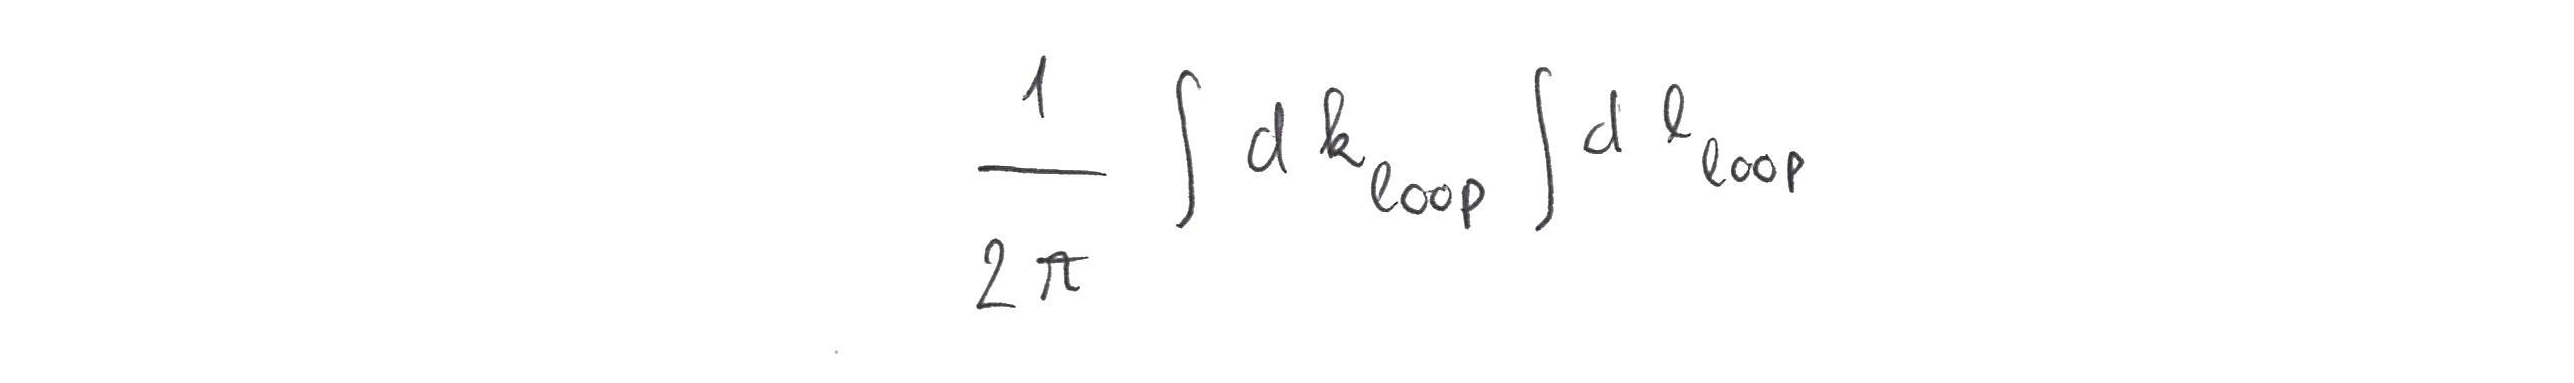 \frac{1}{2\pi} \int d k_{loop} \int d \ell_{loop}